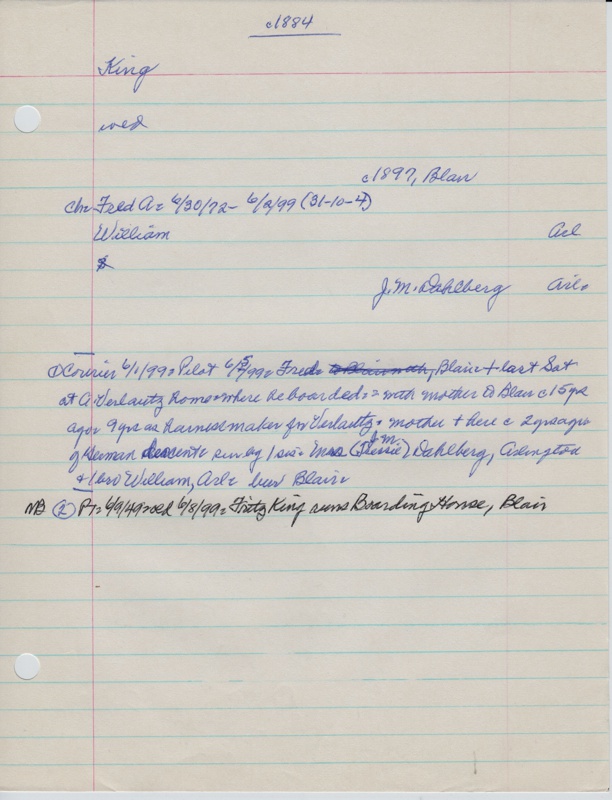 c1884
King
wed
c1897, Blair
chn Fred A= 6/30/72- 6/3/99 (31-10-4)
William Arl
J. M. Dahlberg Arl=
① Courier 6/1/99= Pilot 6/5/99= Fred= Blair + last Sat
at A Verlautz home= where he boarded= = with mother to Blair c15 yrs
ago= 9 yrs as harnessmaker for Verlautz= mother + here c 2 yrs ago
of German descent= surv by 1 sis= Mrs J.M. Dahlberg, Arlington
+ 1 bro William, Arl= bur Blair=
② PT= 6/9/49= wed 6/8/99= Fritz King runs Boarding House, Blair